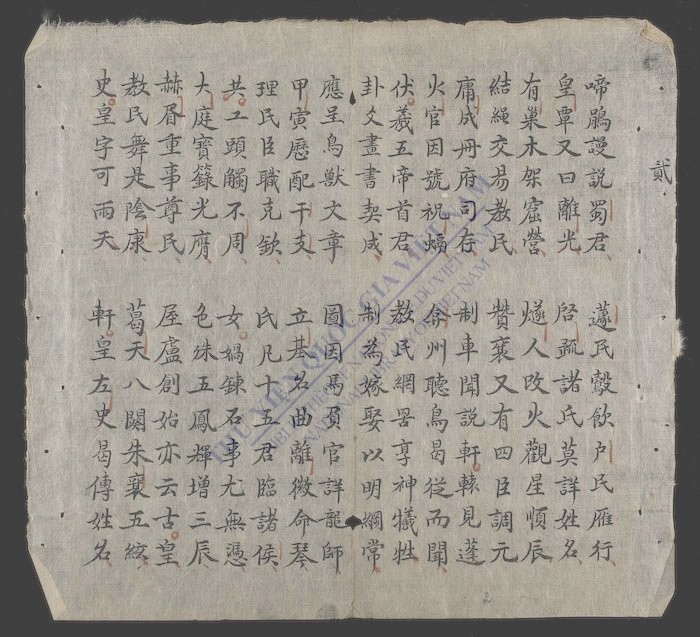 貳
啼鵑謾説蜀君 蘧民鷇飲户民雁行
皇覃又曰離光 啓疏諸氏莫詳姓名
有巢木架窟營 燧人改火觀星順辰
結繩交易教民 贊襄又有四臣調元
庸成冊府司存 制車聞説軒轅見蓬
火官因號祝螎 弇州聽鳥曷從而聞
伏羲五帝首君 教民網罟享神犧牲
卦爻畫書契成 制為嫁娶以明綱常
應呈鳥獸文章 圖因馬負官詳龍師
甲寅歷配干支 立基名曲離徽命琴
理民臣職克欽 氏凡十五君臨諸侯
共工頭觸不周 女媧鍊石事尤無憑
大庭寶籙光膺 色殊五鳳輝增三辰
赫胥重事尊民 屋廬創始亦云古皇
教民舞是陰康 葛天八闋朱襄五絃
史皇字可雨天 軒皇左史曷傳姓名
THƯ VIỆN QUỐC GIA VIỆT NAM
BIBLIOTHEQUE NATIONALE DU VIETNAM
NATIONAL LIBRARY OF VIETNAM
2